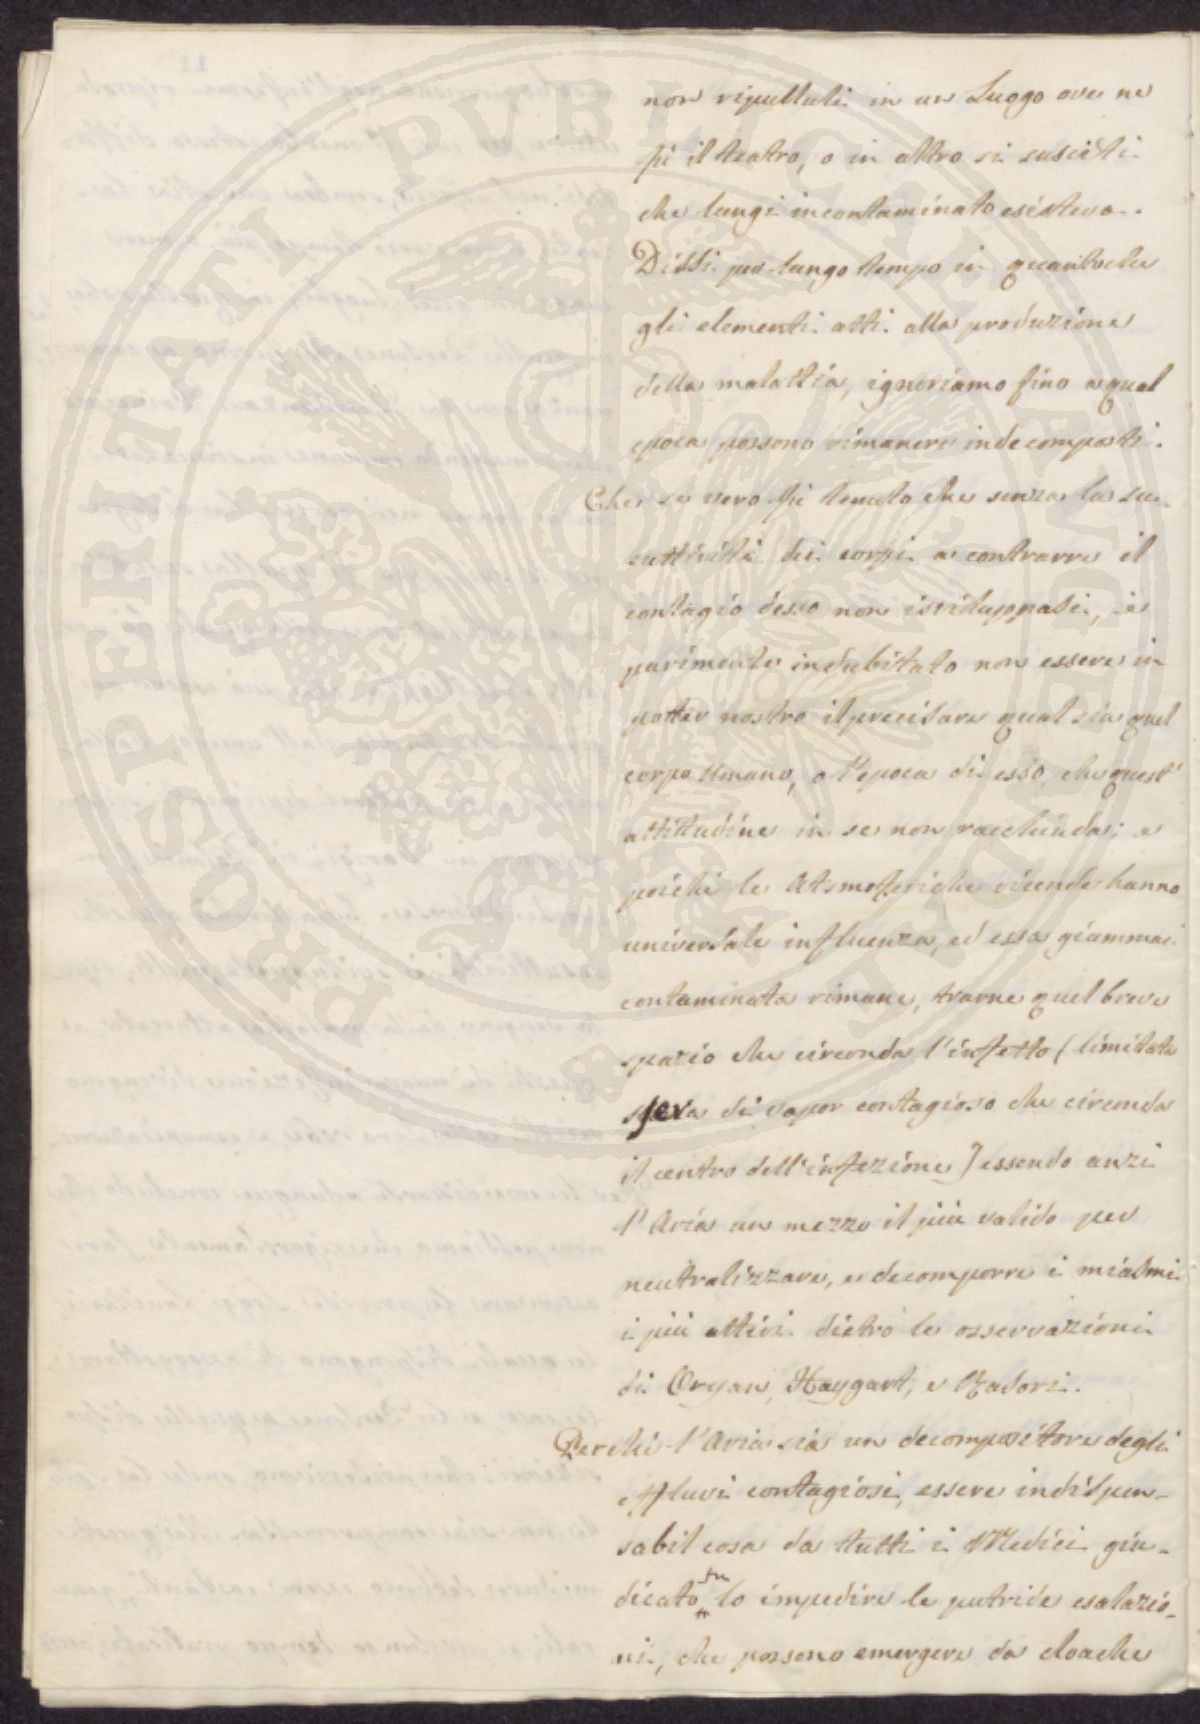 non ripulluli in un Luogo ove ne
fù il teatro, o in altro si susciti
che lungi incontaminato esisteva.
Dissi per lungo tempo in quantoche
gli elementi atti alla produzione
della malattia, ignoriamo fino a qual
epoca possono rimanere indecomposti.
Che se vero fù tenuto che senza la su-
cuttività dei corpi a contrarre il
contagio desso non isviluppasi, è
parimente indubitato non essere in
potter nostro il precisare qual sia quel
corpo Umano, o l'epoca di esso, che quest'
attitudine in se non racchiuda; e
poichè le Atmosferiche vicende hanno
universale influenza, ed essa giammai
contaminata rimane, trarne quel breve
spazio che circonda l'infetto (limitata
sfera di vapor contagioso che circonda
il centro dell'infezione) essendo anzi
l'Aria un mezzo il più valido per
neutralizzare, e decomporre i miasmi
i più attivi dietro le osservazioni
di Oryan, Haygart, e Rasori.
Perchè l'Aria sia un decompositore degli
effluvi contagiosi, essere indispen-
sabil cosa da tutti i Medici giu-
dicato fu lo impedire le putride esalazio-
ni, che possono emergere da cloache
PROSPERITATI PUBLICAE AUGENDAE
11